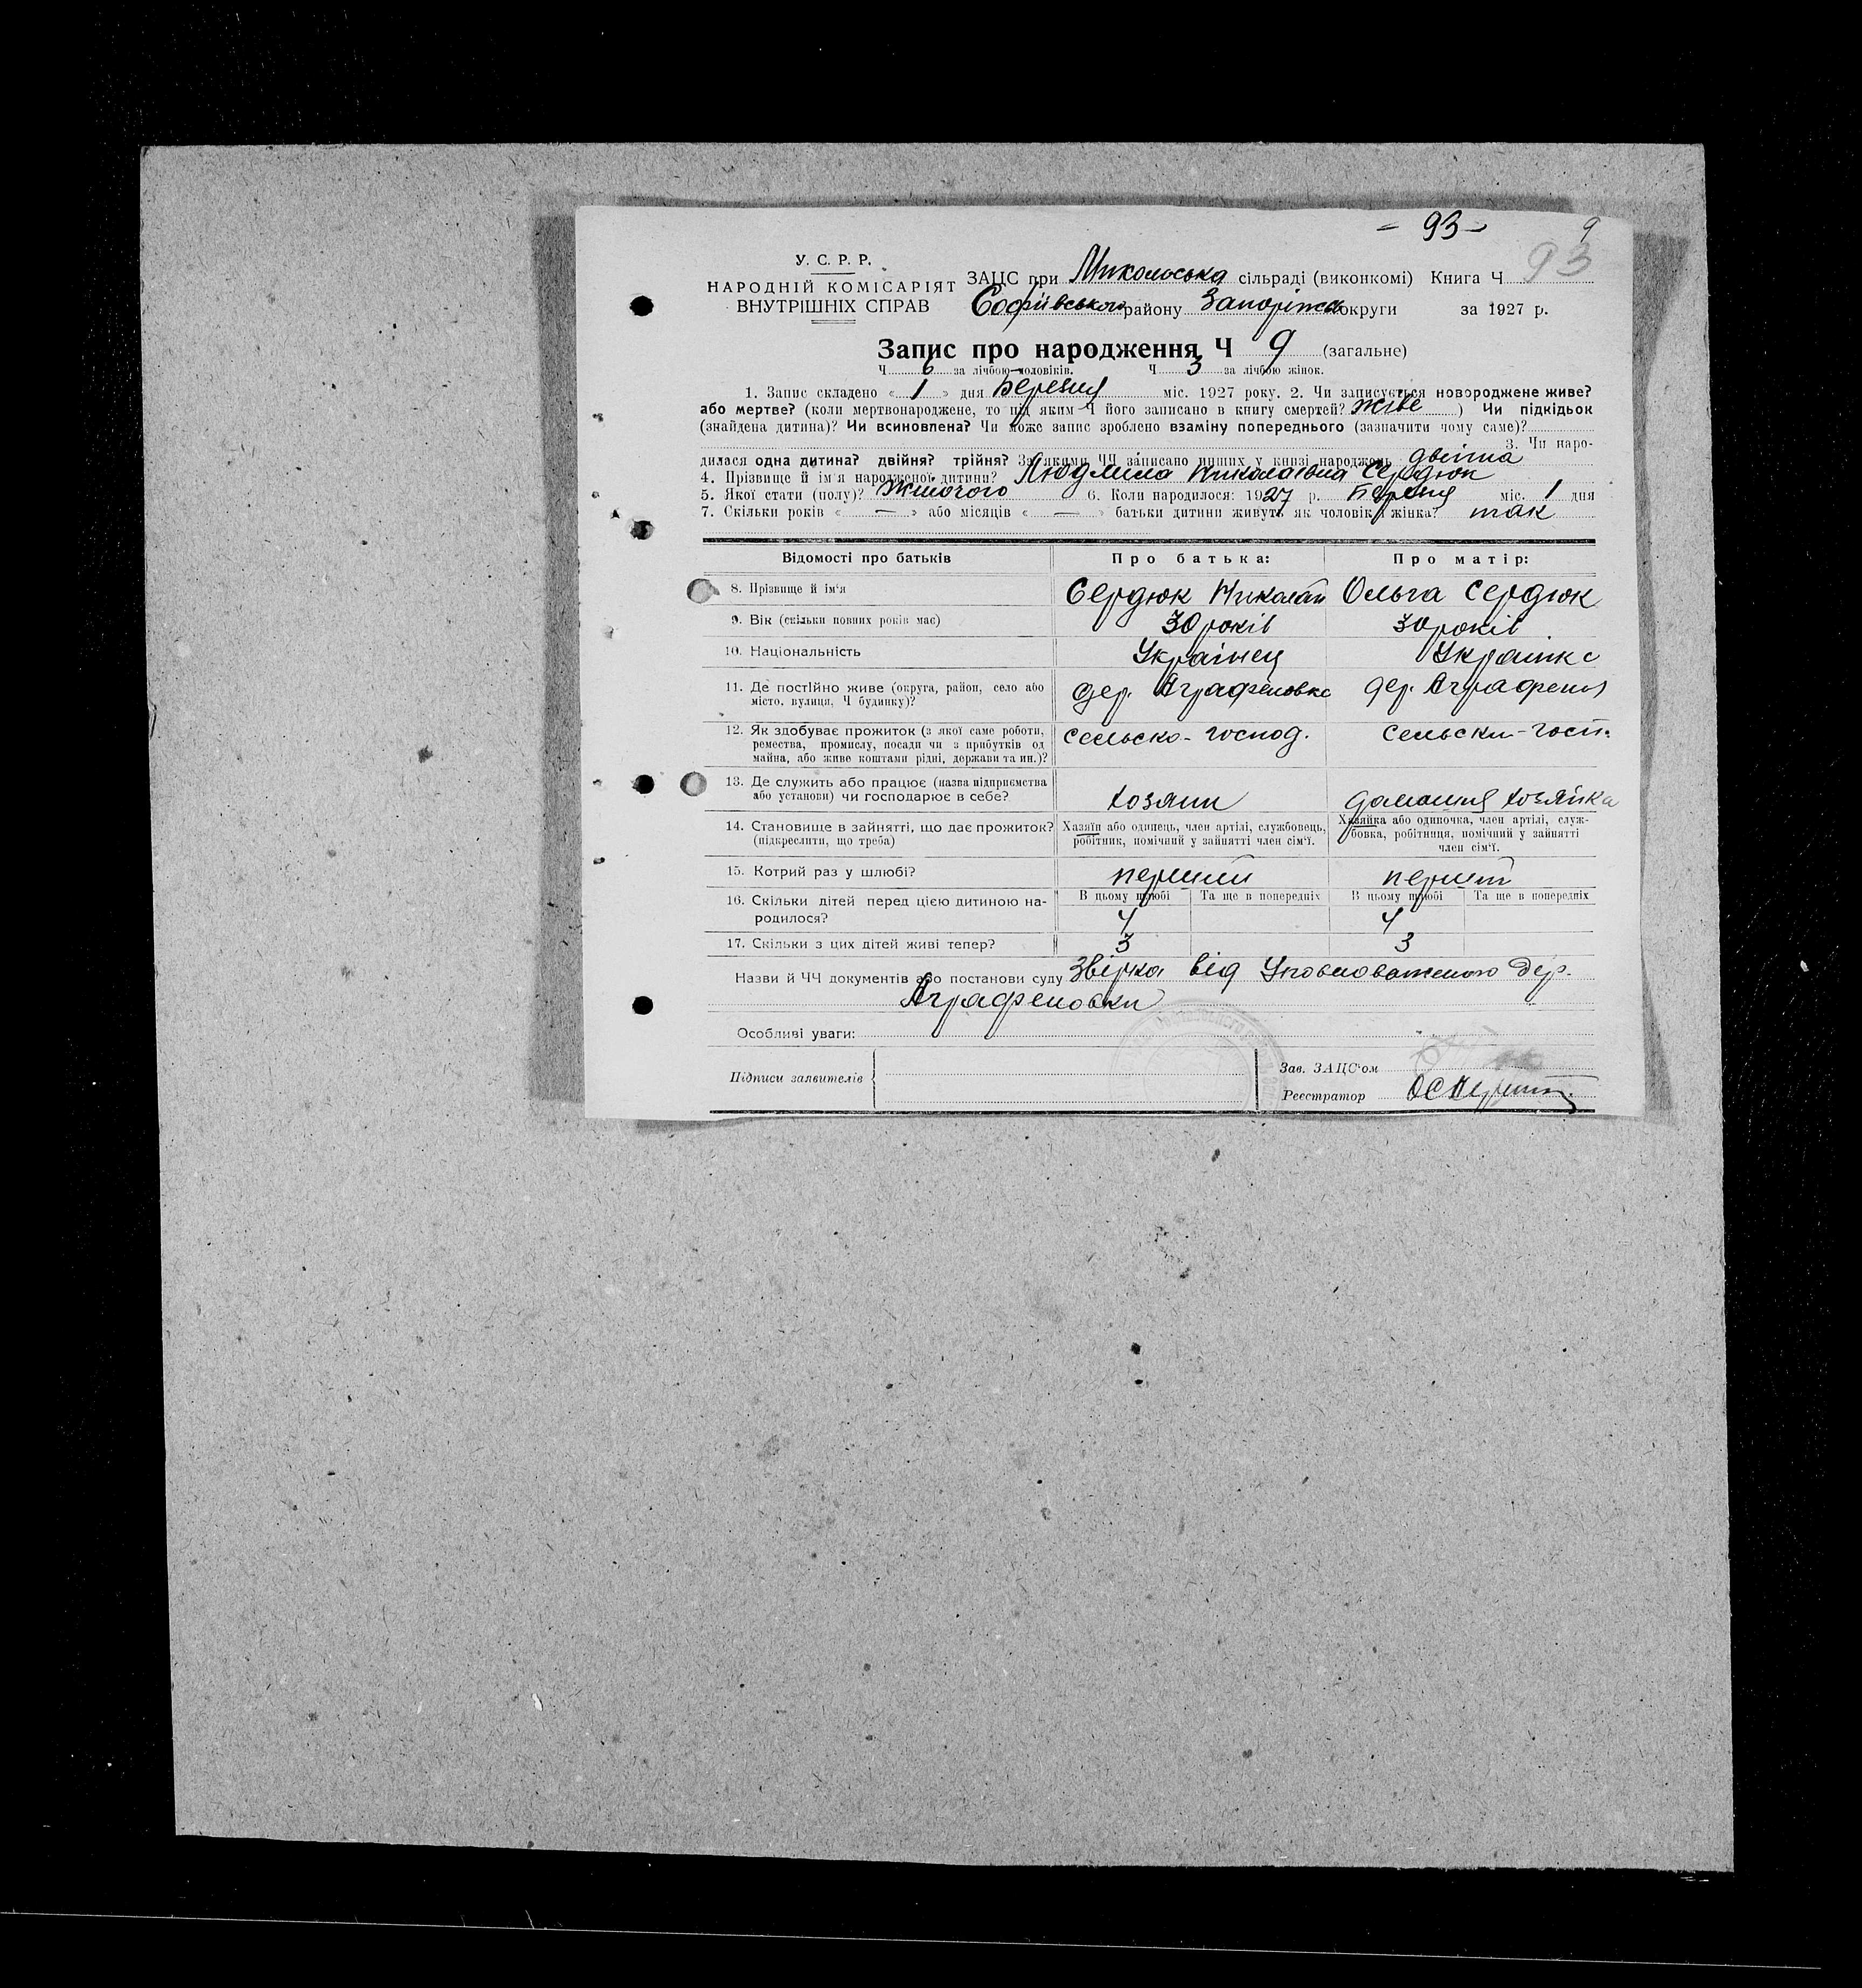 - 93 -
9
93
У. С. Р. Р.
НАРОДНІЙ КОМІСАРІЯТ
ВНУТРІШНІХ СПРАВ
ЗАЦС при Микольська сільраді (виконкомі) Книга Ч
Софіївського району Запоріжс округи за 1927 р.
Запис про народження Ч 9 (загальне)
Ч 6 за лічбою чоловіків. Ч 3 за лічбою жінок.
1. Запис складено « 1 » дня Березня міс. 1927 року. 2. Чи записується новороджене живе?
або мертве? (коли мертвонароджене, то під яким Ч його записано в книгу смертей? живе ) Чи підкідьок
(знайдена дитина)? Чи всиновлена? Чи може запис зроблено взаміну попереднього (зазначити чому саме)?
3. Чи наро-
дилася одна дитина? двійня? трійня? За якими ЧЧ записано инших у книзі народжень
4. Прізвище й ім'я народженої дитини? Людмила Николаевна Сердюк
5. Якої стати (полу)? жиночого 6. Коли народилося: 1927 р. Березня міс. 1 дня
7. Скільки років « — » або місяців « — » батьки дитини живуть як чоловік і жінка? так
Відомості про батьків Про батька: Про матір:
8. Прізвище й ім'я Сердюк Николай Ольга Сердюк
9. Вік (скільки повних років має) 30 років 30 років
10. Національність Українец Украінка
11. Де постійно живе (округа, район, село або
місто, вулиця, Ч будинку)? дер. Аграфеновка дер. Аграфенов
12. Як здобуває прожиток (з якої саме роботи,
ремества, промислу, посади чи з прибутків од
майна, або живе коштами рідні, держави та ин.)? сельско-господ. сельски-госп.
13. Де служить або працює (назва підприємства
або установи) чи господарює в себе? хозяин домашня хозяйка
14. Становище в зайнятті, що дає прожиток?
(підкреслити, що треба)
Хазяїн або одинець, член артілі, службовець,
робітник, помічний у зайнятті член сім'ї.
Хазяйка або одиночка, член артілі, служ-
бовка, робітниця, помічний у зайнятті
член сім'ї.
15. Котрий раз у шлюбі? перший перший
16. Скільки дітей перед цією дитиною на-
родилося?
В цьому шлюбі Та ще в попередніх В цьому шлюбі Та ще в попередніх
4 4
17. Скільки з цих дітей живі тепер? 3 3
Назви й ЧЧ документів або постанови суду Звірка від Уповноваженого дер.
Аграфеновки
Особливі уваги:
Підписи заявителів
Зав. ЗАЦС'ом
Реєстратор